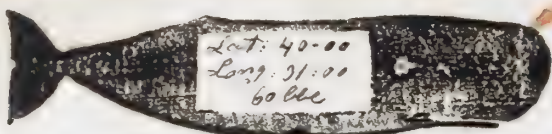 Lat: 40-00
Long: 31:00
60 bbl